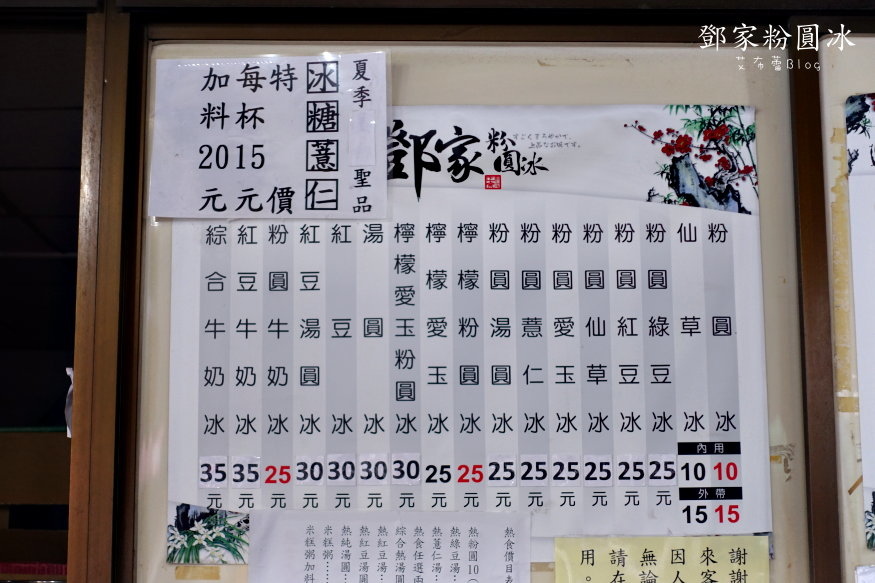 鄧家粉圓冰
艾布蕾Blog
夏季 聖品
冰糖薏仁
特價
每杯15元
加料20元
鄧家粉圓冰
粉圓冰 內用10 外帶15
仙草冰 10 15元
粉圓綠豆冰25元
粉圓紅豆冰25元
粉圓仙草冰25元
粉圓愛玉冰25元
粉圓薏仁冰25元
粉圓湯圓冰25元
檸檬粉圓冰25元
檸檬愛玉冰25元
檸檬愛玉粉圓冰30元
湯圓冰30元
紅豆冰30元
紅豆湯圓冰30元
粉圓牛奶冰25元
紅豆牛奶冰35元
綜合牛奶冰35元
熱食價目表
熱粉圓10
熱綠豆湯
熱薏仁湯
熱食任選兩
綜合熱湯圓
熱紅豆湯
熱紅豆湯圓
熱純湯圓
米糕粥
米糕粥加料
謝謝
來客
因人
無論
請在
用。